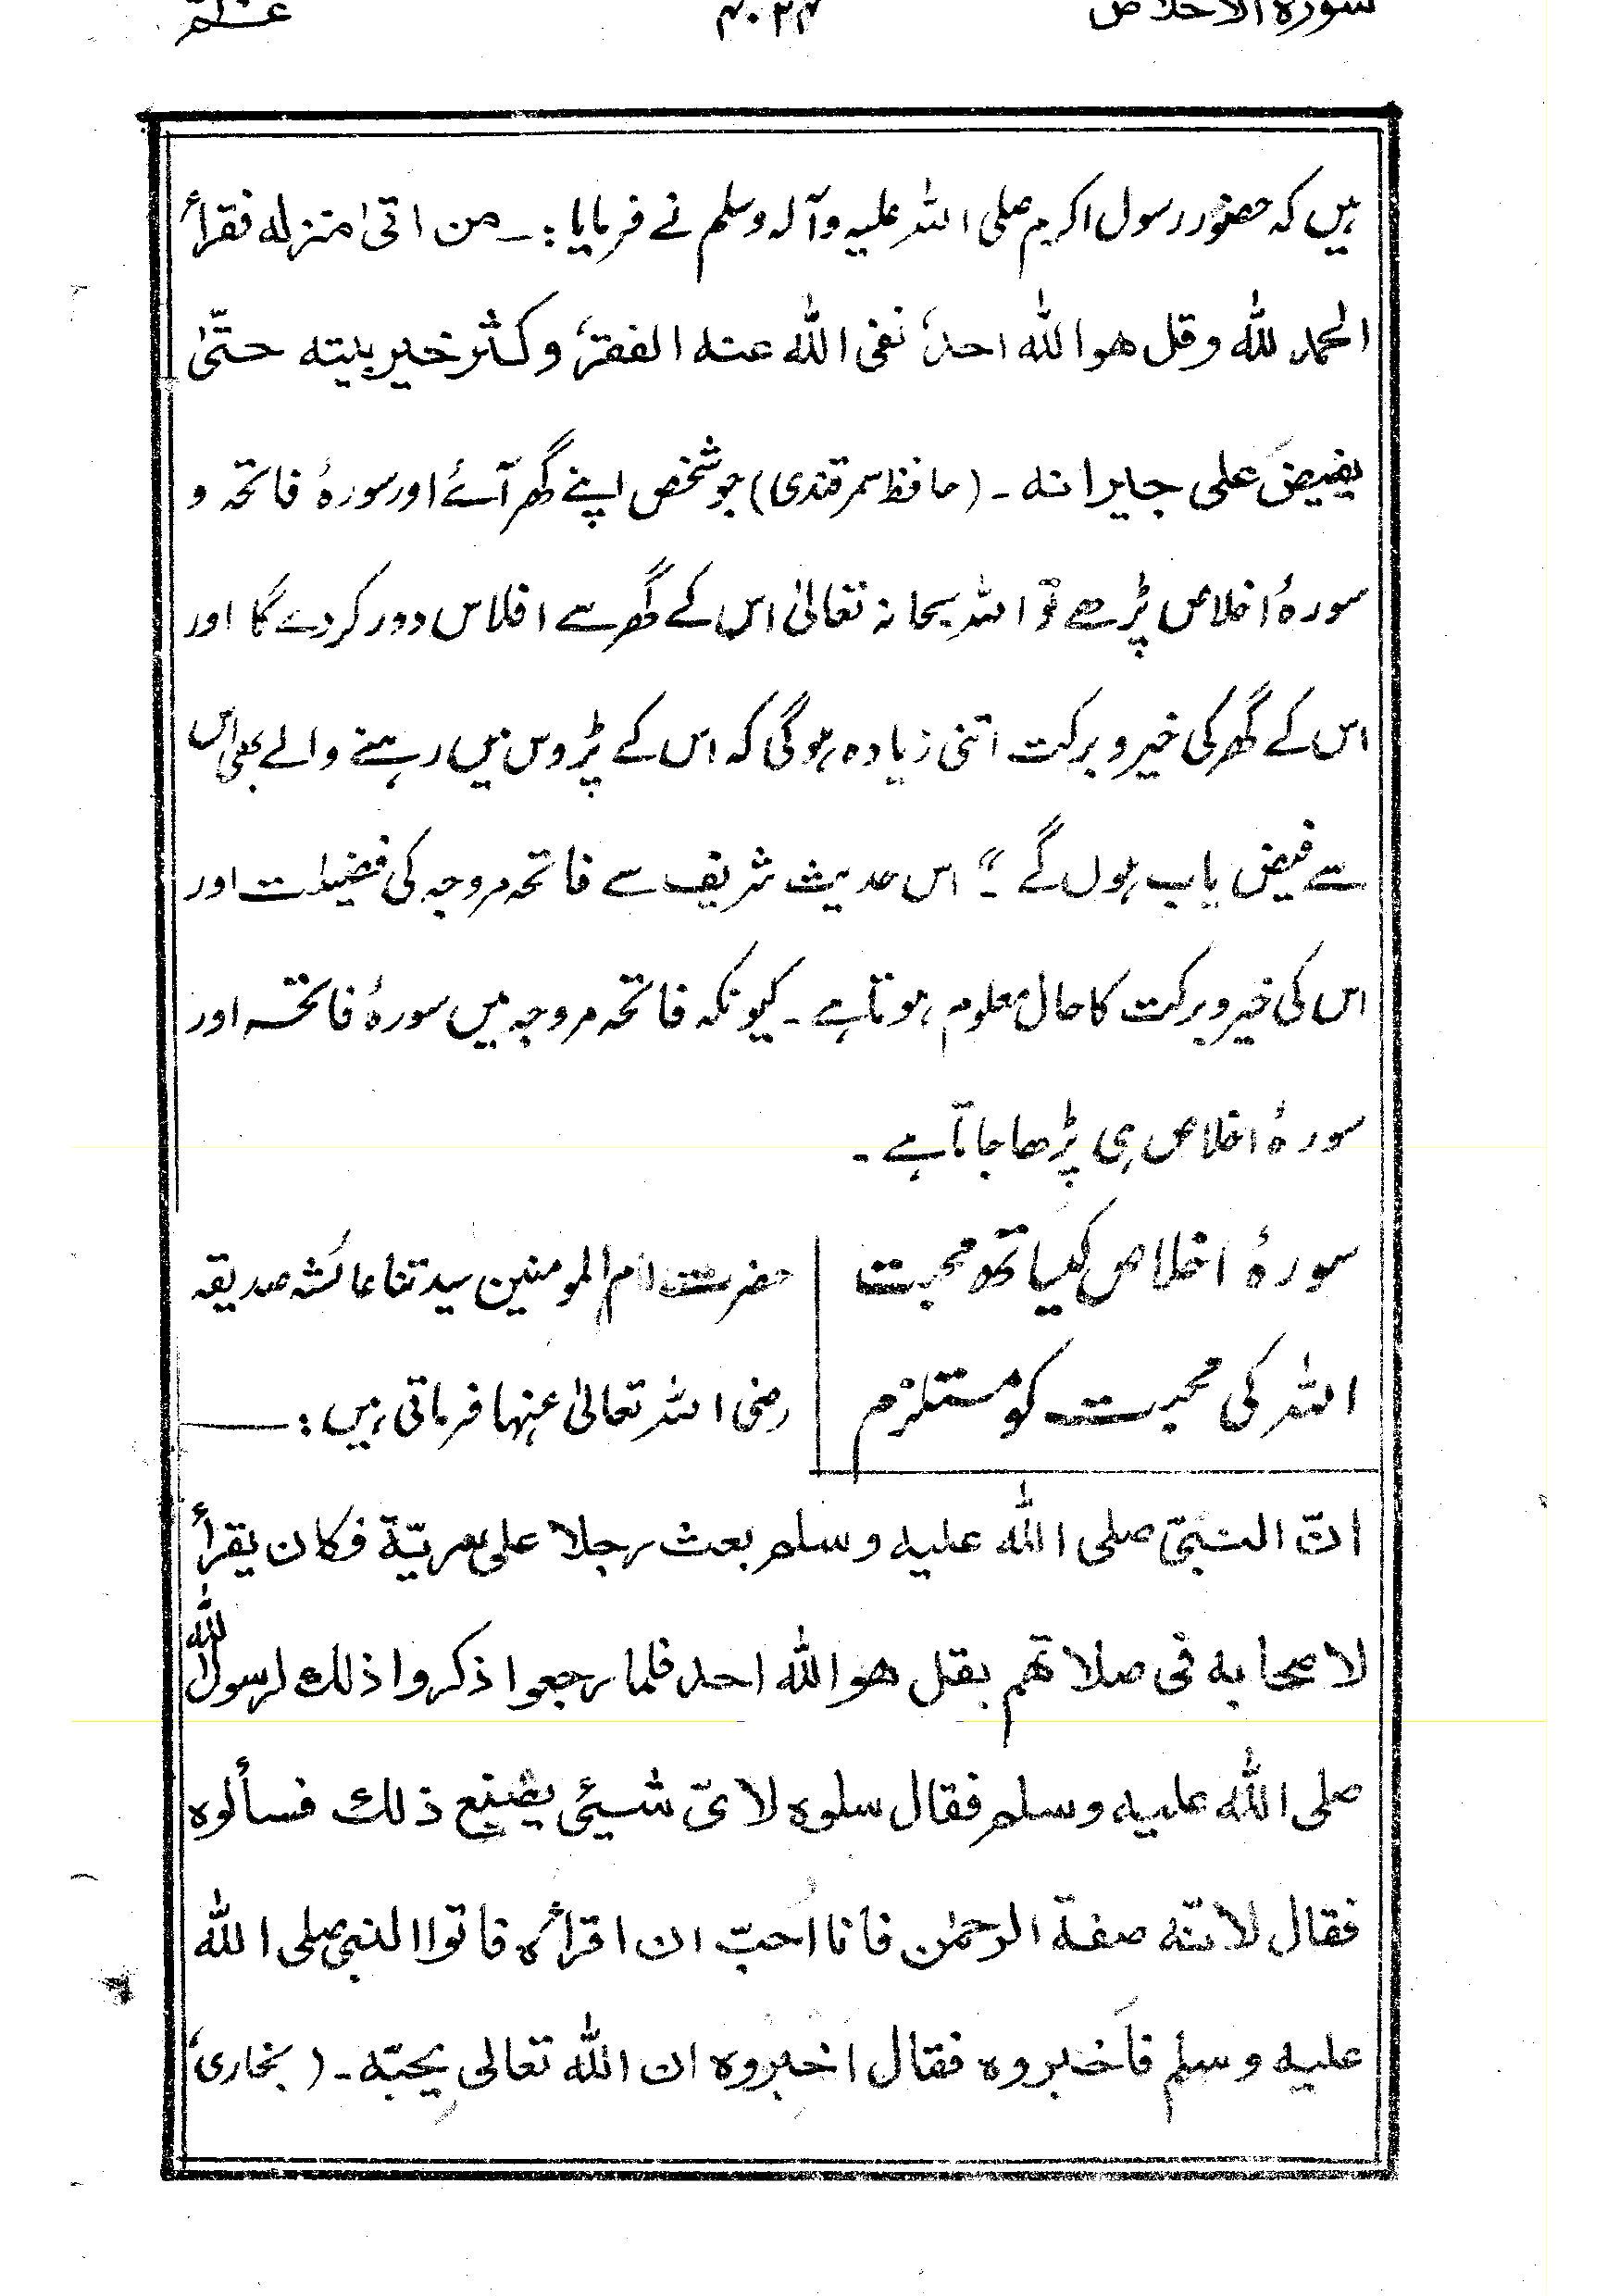 سورة الاخلاص ۴۰۲۴ عـــم
ہیں کہ حضور رسول اکرم صلی اللہ علیہ وآلہ وسلم نے فرمایا :۔ من اتیٰ منزله فقرأ
الحمد للّٰه وقل هو اللّٰه احد، نفی اللّٰه عنه الفقر، وكثر خير بيته حتّیٰ
يفيض علی جیرانہ ۔ (حافظ سمرقندی) جو شخص اپنے گھر آئے اور سورۂ فاتحہ و
سورۂ اخلاص پڑھے تو اللہ سبحانہ تعالیٰ اس کے گھر سے افلاس دور کر دے گا اور
اس کے گھر کی خیر و برکت اتنی زیادہ ہوگی کہ اس کے پڑوس میں رہنے والے بھی اس
سے فیض یاب ہوں گے ۔“ اس حدیث شریف سے فاتحہ مروجہ کی فضیلت اور
اس کی خیر و برکت کا حال معلوم ہوتا ہے ۔ کیونکہ فاتحہ مروجہ میں سورۂ فاتحہ اور
سورۂ اخلاص ہی پڑھا جاتا ہے ۔
سورۂ اخلاص کیساتھ محبت
اللہ کی محبت کو مستلزم
حضرت ام المومنین سیدتنا عائشہ صدیقہ
رضی اللہ تعالیٰ عنہا فرماتی ہیں :ــــــ
انّ النبیّ صلی اللّٰه عليه وسلم بعث رجلا علی سريّة فكان يقرأ
لاصحابه فی صلاتهم بقل هو اللّٰه احد فلما رجعوا ذكروا ذلك لرسول اللّٰه
صلی اللّٰه عليه وسلم فقال سلوه لایّ شیئی يصنع ذلك فسألوه
فقال لانّه صفة الرحمٰن فانا اُحبّ ان اقرأه فاتوا النبی صلی اللّٰه
عليه وسلم فاَخبروه فقال اخبروه ان اللّٰه تعالی يحبّه ۔ (بخاری،